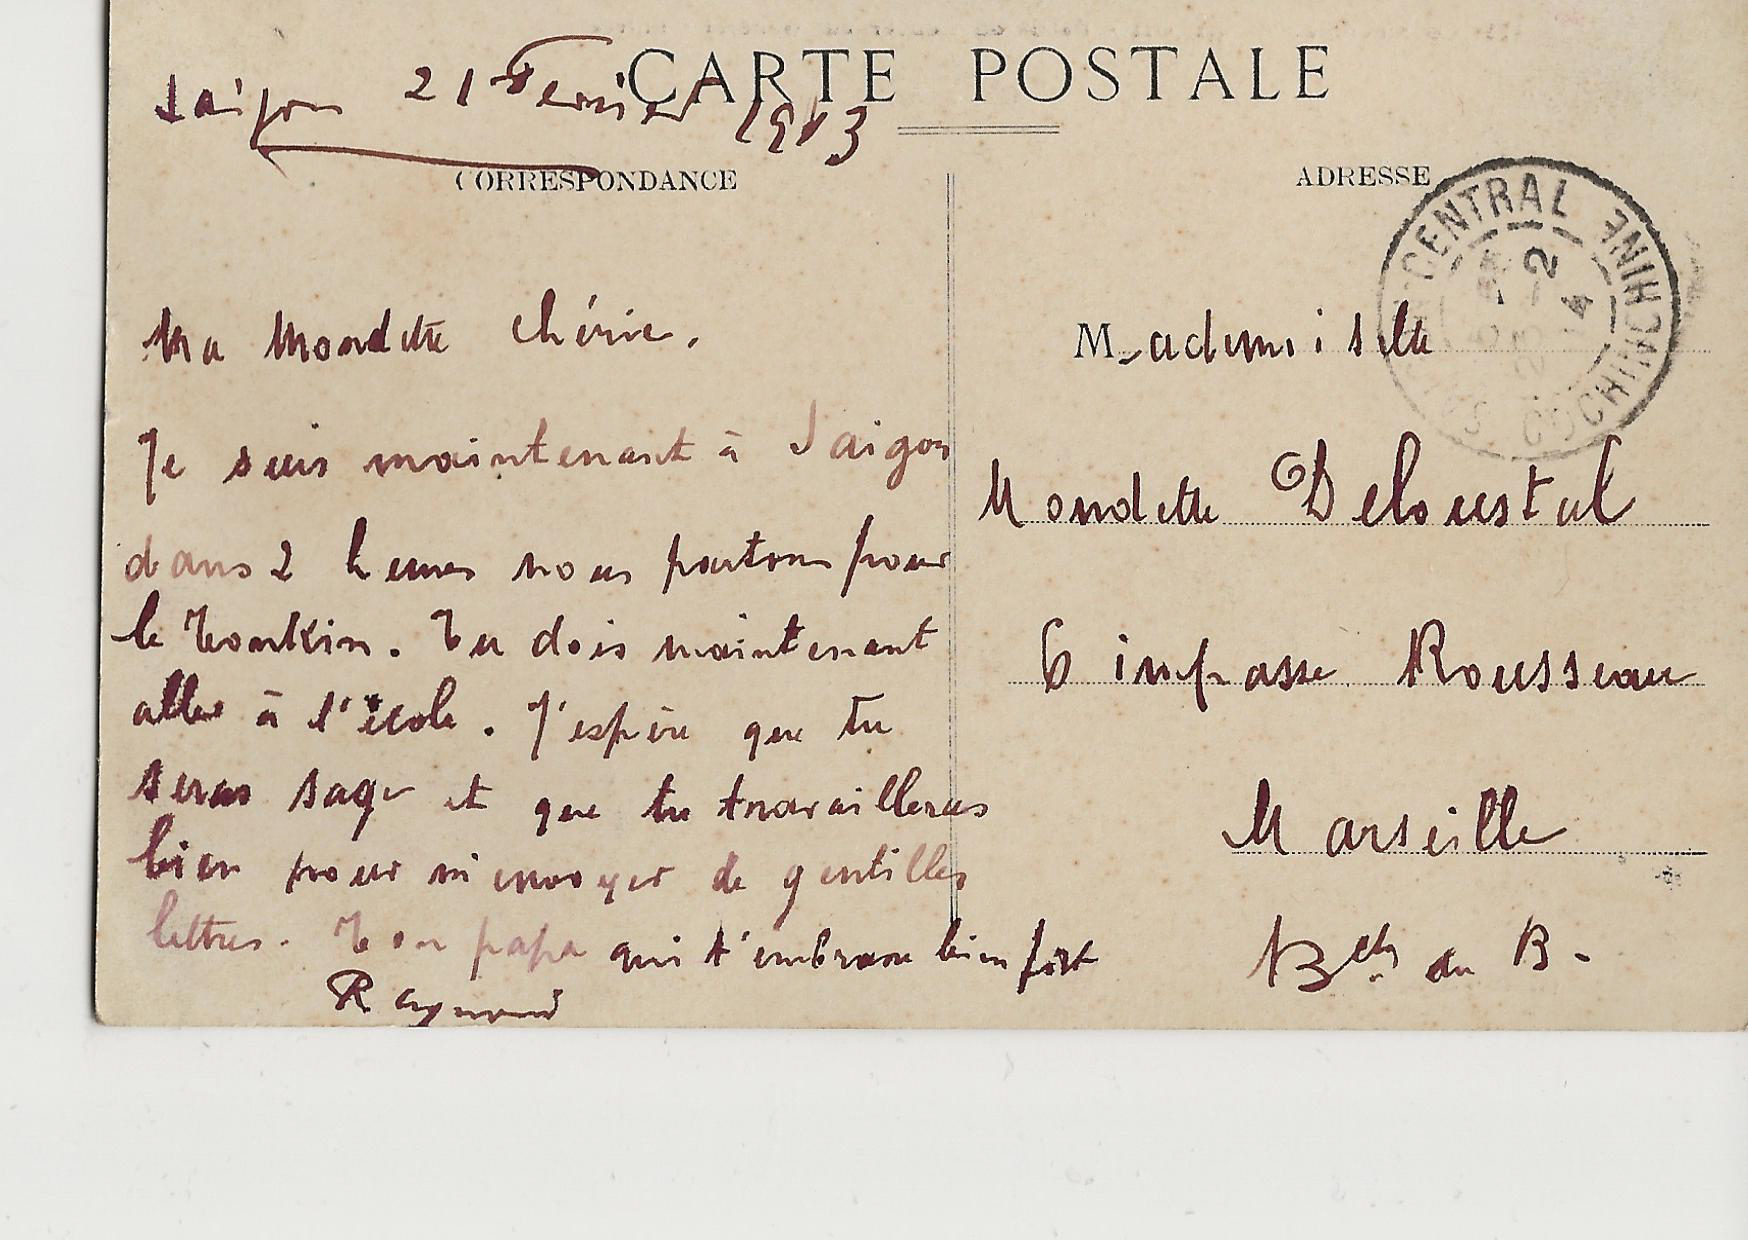 CARTE POSTALE
Saigon 21 Fevrier 1913
CORRESPONDANCE
Ma Mondette chérie.
Je suis maintenant à Saigon
dans 2 heures nous partons pour
le Tonkin. Tu dois maintenant
aller à l'école. J'espère que tu
seras sage et que tu travailleras
bien pour m'envoyer de gentilles
lettres. Ton papa qui t'embrasse bien fort
Raymond
ADRESSE
CENTRAL
COCHINCHINE
Mademoiselle
Mondette Deloustal
6 impasse Rousseau
Marseille
B. du R.